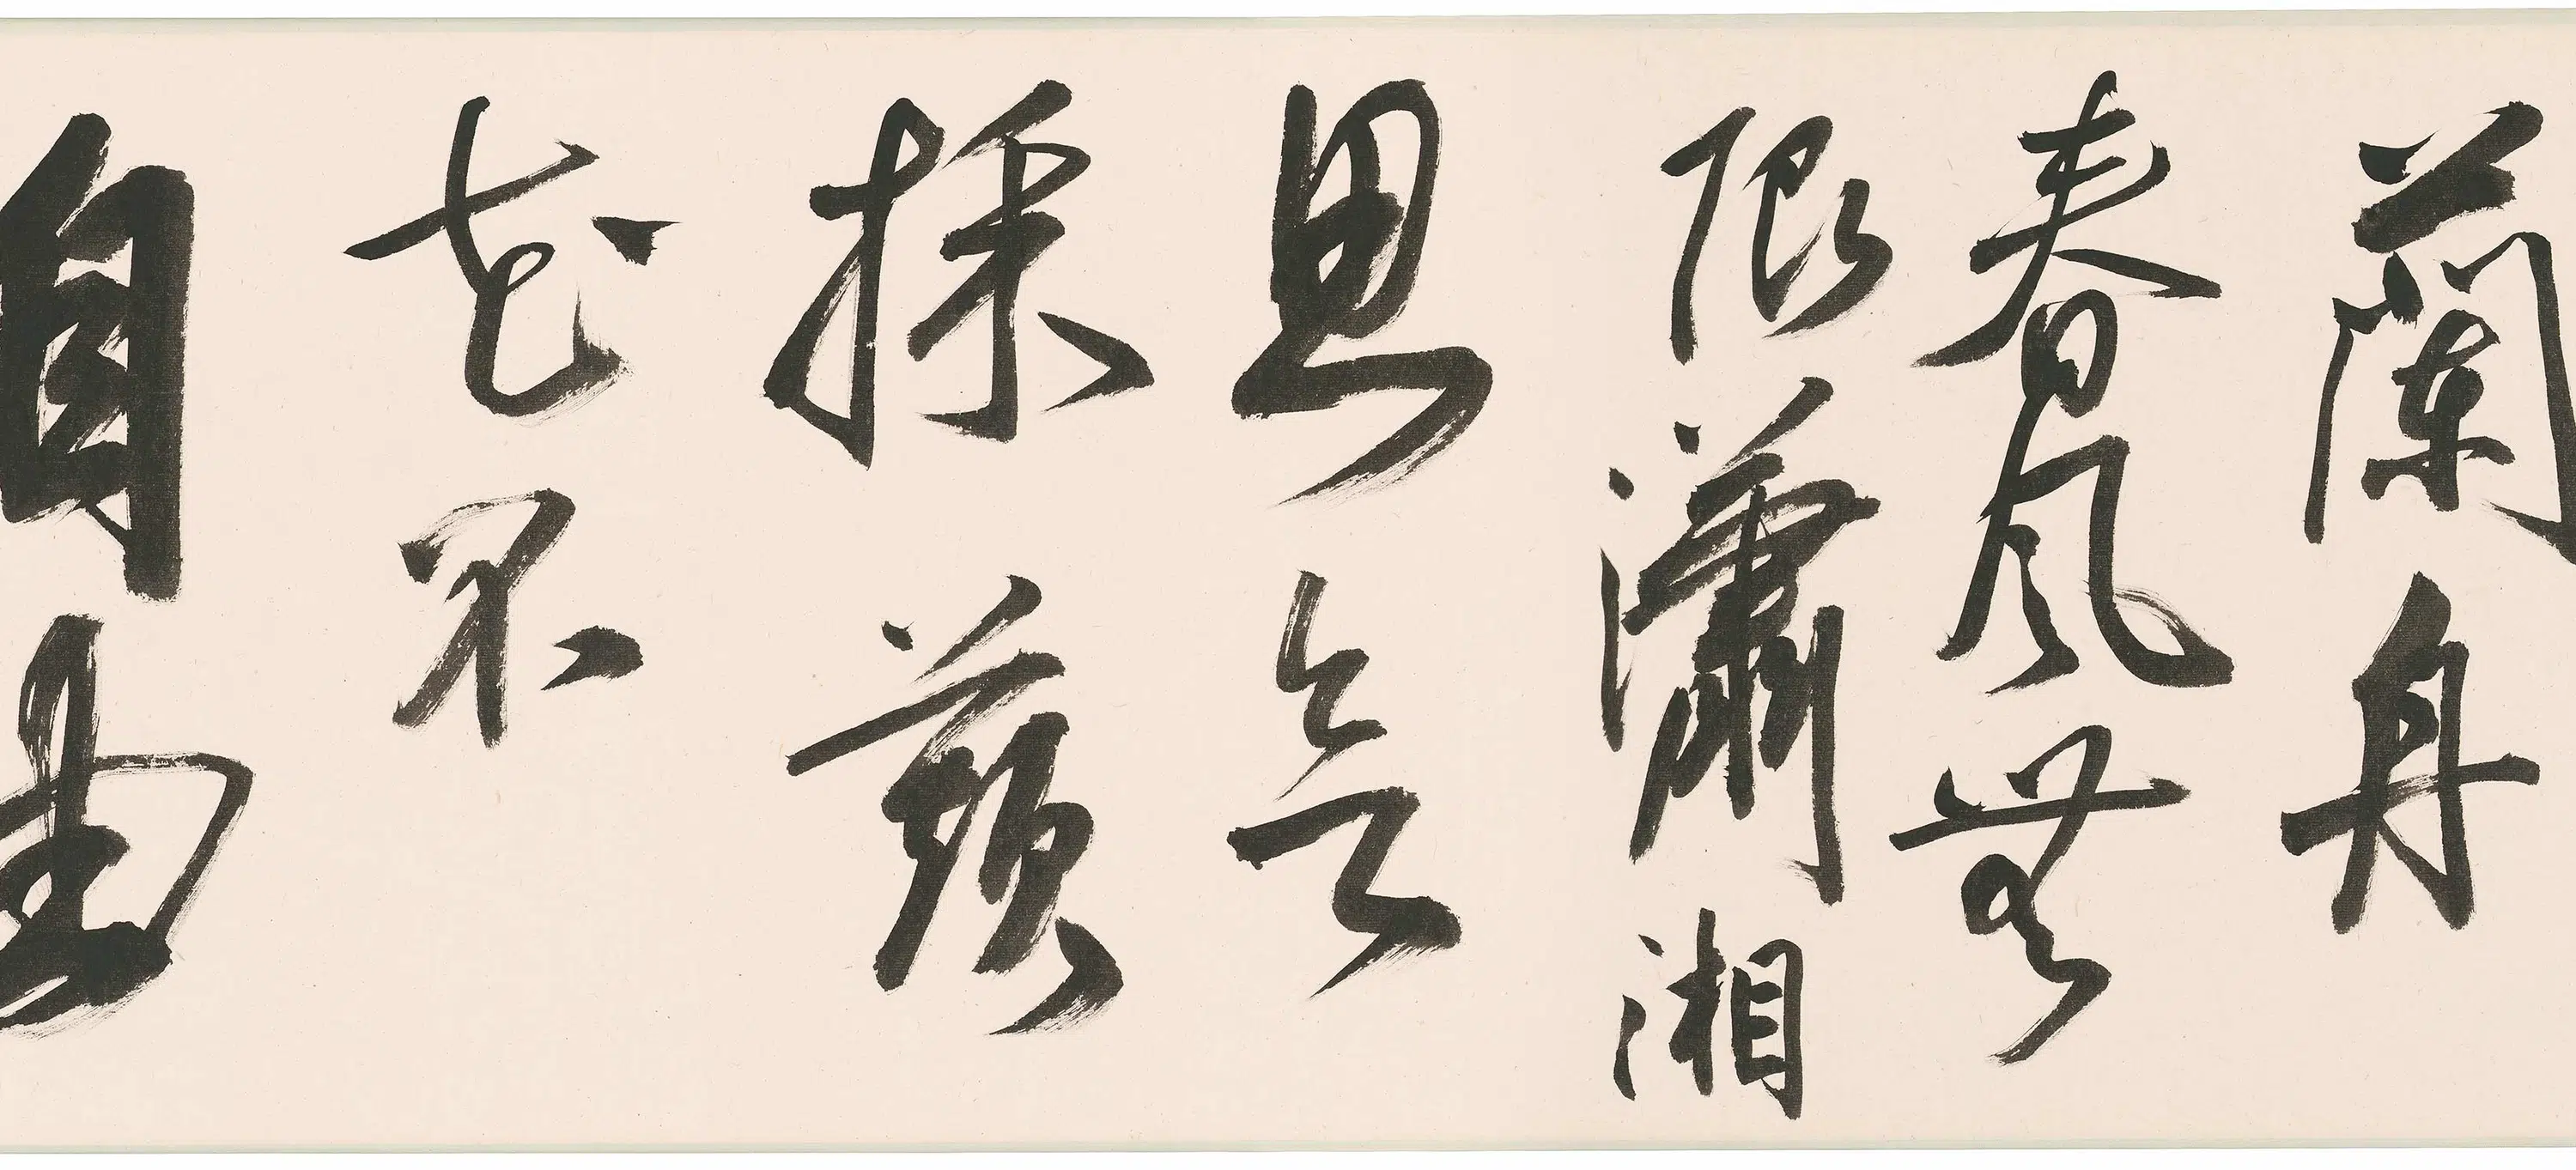 蘭舟
春風無
限瀟湘
思欲
採蘋
花不
自由